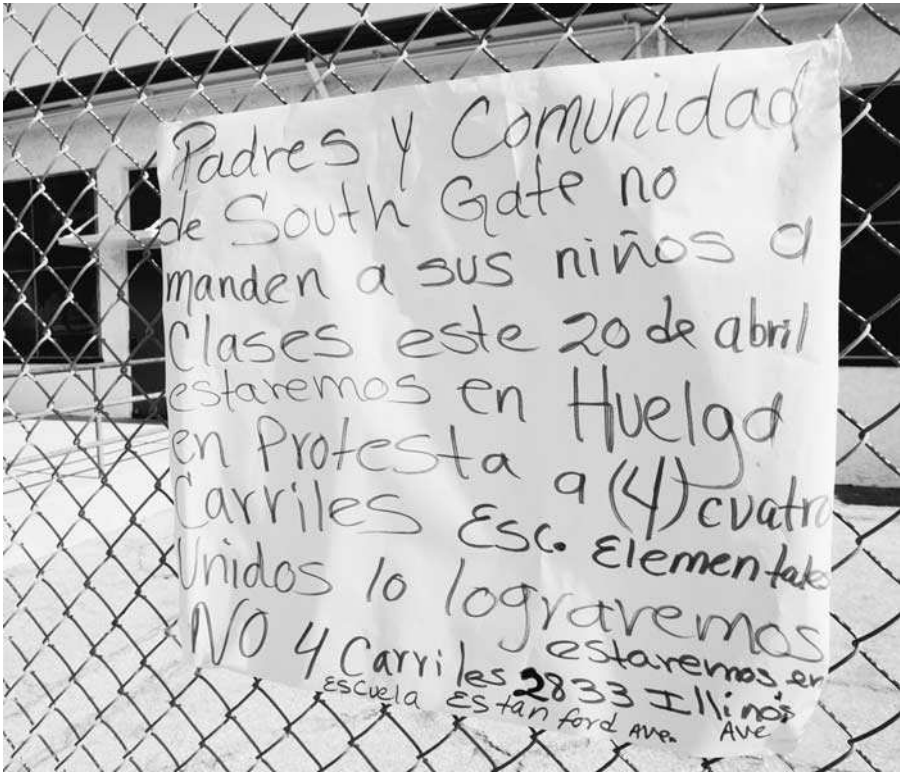 Padres y Comunidad
de South Gate no
manden a sus niños a
Clases este 20 de abril
estaremos en Huelga
en Protesta a (4) cuatro
Carriles Esc. Elementales
Unidos lo lograremos
NO 4 Carriles estaremos en
2833 Illinois Ave
Escuela Estanford Ave.